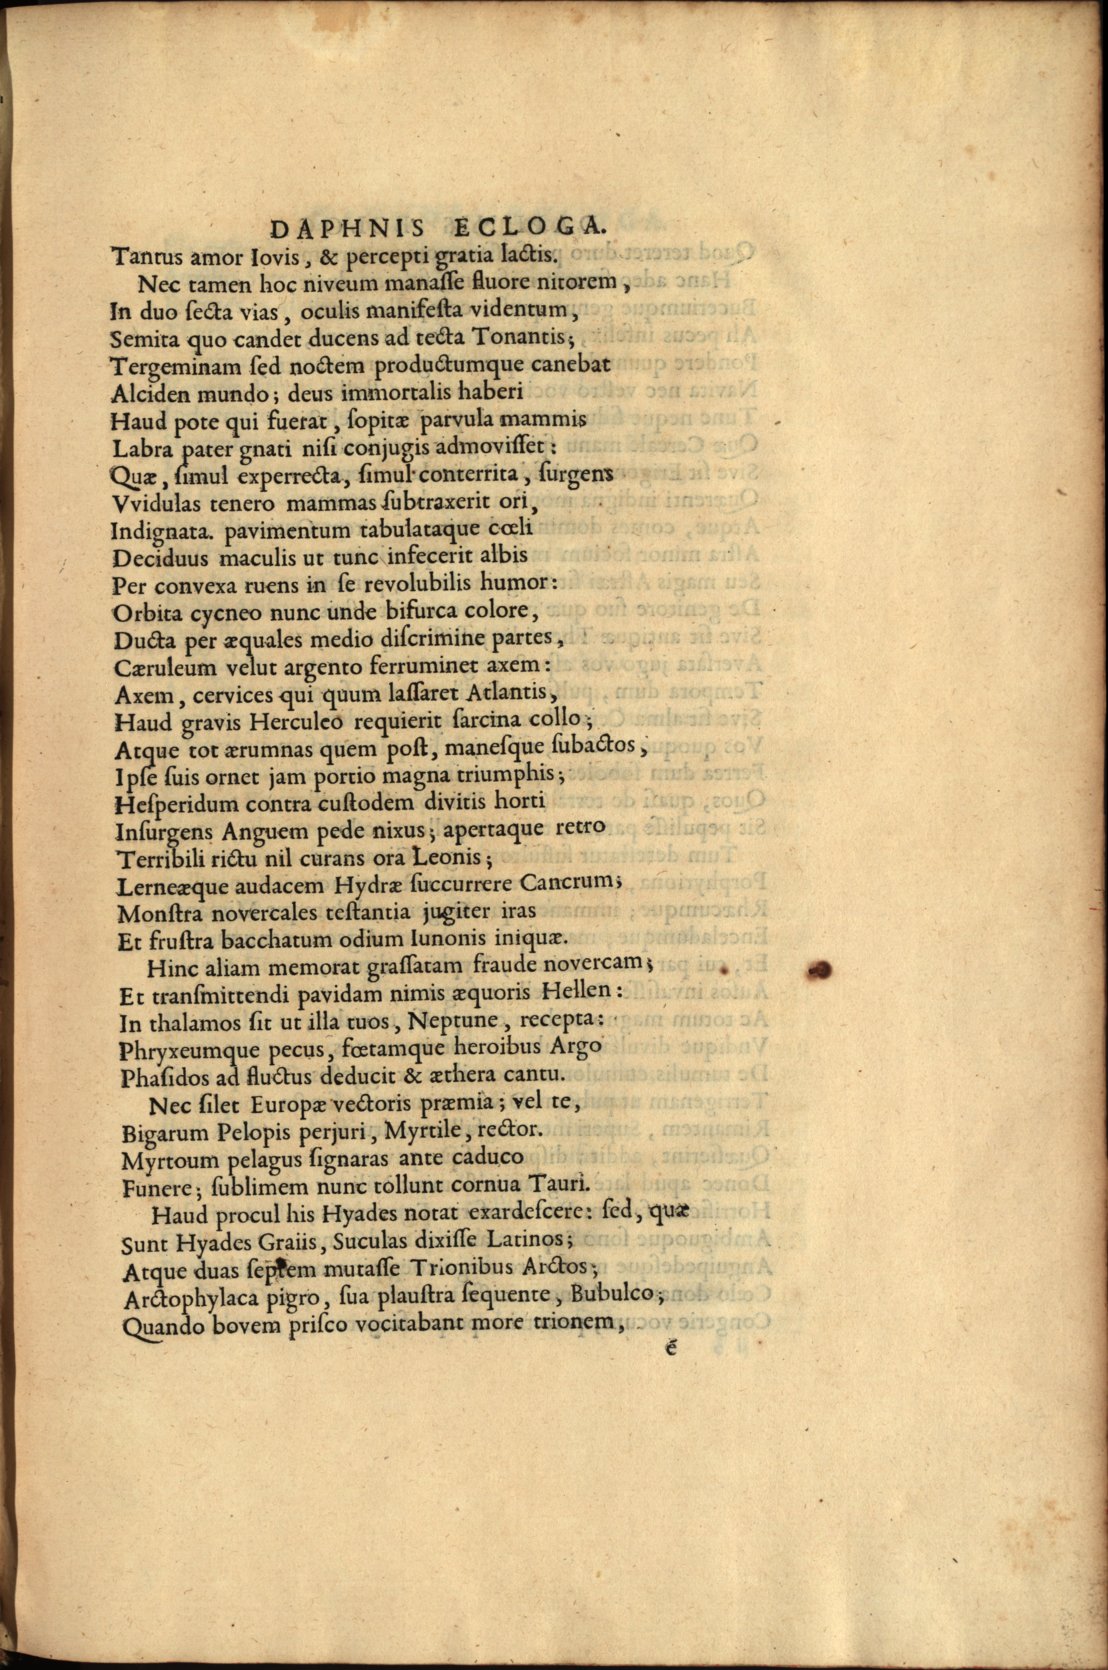 DAPHNIS ECLOGA.
Tantus amor Iovis, & percepti gratia lactis.
Nec tamen hoc niveum manaſſe fluore nitorem,
In duo ſecta vias, oculis manifeſta videntum,
Semita quo candet ducens ad tecta Tonantis;
Tergeminam ſed noctem productumque canebat
Alciden mundo; deus immortalis haberi
Haud pote qui fuerat, ſopitæ parvula mammis
Labra pater gnati niſi conjugis admoviſſet:
Quæ, ſimul experrecta, ſimul conterrita, ſurgens
Vvidulas tenero mammas ſubtraxerit ori,
Indignata. pavimentum tabulataque cœli
Deciduus maculis ut tunc infecerit albis
Per convexa ruens in ſe revolubilis humor:
Orbita cycneo nunc unde bifurca colore,
Ducta per æquales medio diſcrimine partes,
Cæruleum velut argento ferruminet axem:
Axem, cervices qui quum laſſaret Atlantis,
Haud gravis Herculeo requierit ſarcina collo;
Atque tot ærumnas quem poſt, maneſque ſubactos,
Ipſe ſuis ornet jam portio magna triumphis;
Heſperidum contra cuſtodem divitis horti
Inſurgens Anguem pede nixus; apertaque retro
Terribili rictu nil curans ora Leonis;
Lerneæque audacem Hydræ ſuccurrere Cancrum;
Monſtra novercales teſtantia jugiter iras
Et fruſtra bacchatum odium Iunonis iniquæ.
Hinc aliam memorat graſſatam fraude novercam;
Et tranſmittendi pavidam nimis æquoris Hellen:
In thalamos ſit ut illa tuos, Neptune, recepta:
Phryxeumque pecus, fœtamque heroibus Argo
Phaſidos ad fluctus deducit & æthera cantu.
Nec ſilet Europæ vectoris præmia; vel te,
Bigarum Pelopis perjuri, Myrtile, rector.
Myrtoum pelagus ſignaras ante caduco
Funere; ſublimem nunc tollunt cornua Tauri.
Haud procul his Hyades notat exardeſcere: ſed, quæ
Sunt Hyades Graiis, Suculas dixiſſe Latinos;
Atque duas ſeptem mutaſſe Trionibus Arctos;
Arctophylaca pigro, ſua plauſtra ſequente, Bubulco;
Quando bovem priſco vocitabant more trionem,
é